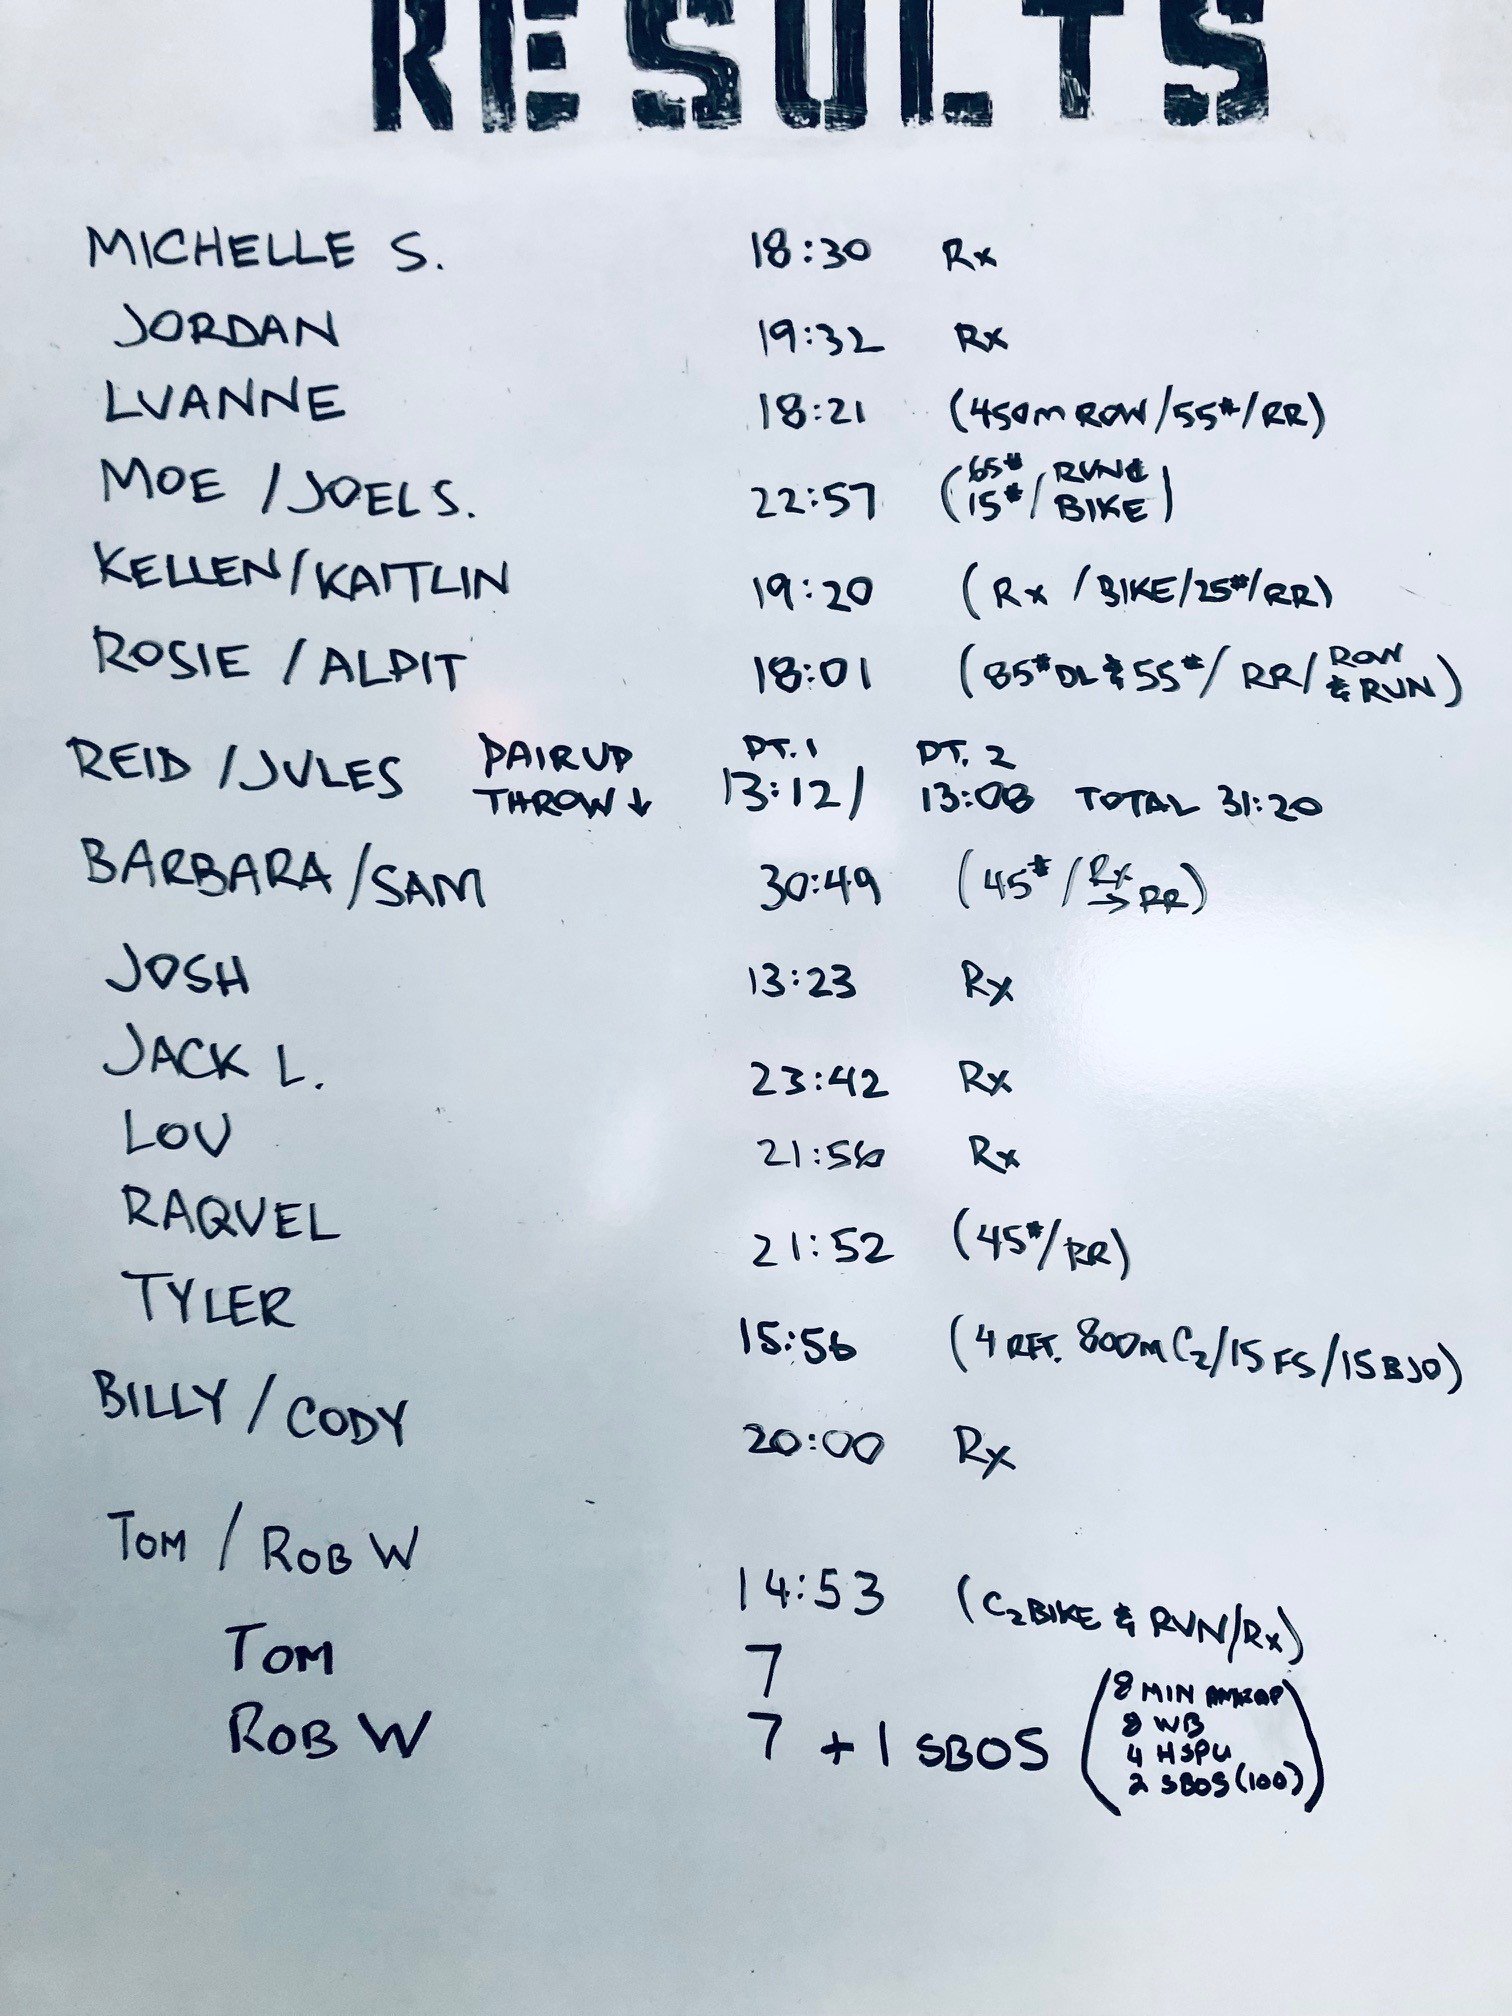 RESULTS
MICHELLE S. 18:30 Rx
JORDAN 19:32 Rx
LUANNE 18:21 (450M ROW/55#/RR)
MOE / JOEL S. 22:57 (65# 15# / RUN & BIKE)
KELLEN/KAITLIN 19:20 (Rx /BIKE/25#/RR)
ROSIE / ALPIT 18:01 (85# DL & 55# / RR/ ROW & RUN)
REID / JULES PAIR UP THROW ↓ PT. 1 13:12 / PT. 2 13:08 TOTAL 31:20
BARBARA / SAM 30:49 (45# / Rx → RR)
JOSH 13:23 Rx
JACK L. 23:42 Rx
LOU 21:56 Rx
RAQUEL 21:52 (45#/RR)
TYLER 15:56 (4 RFT. 800M C2/15 FS/15 BJO)
BILLY / CODY 20:00 Rx
TOM / ROB W 14:53 (C2 BIKE & RUN/Rx)
TOM 7
ROB W 7 + 1 SBOS (8 MIN AMRAP
8 WB
4 HSPU
2 SBOS (100))